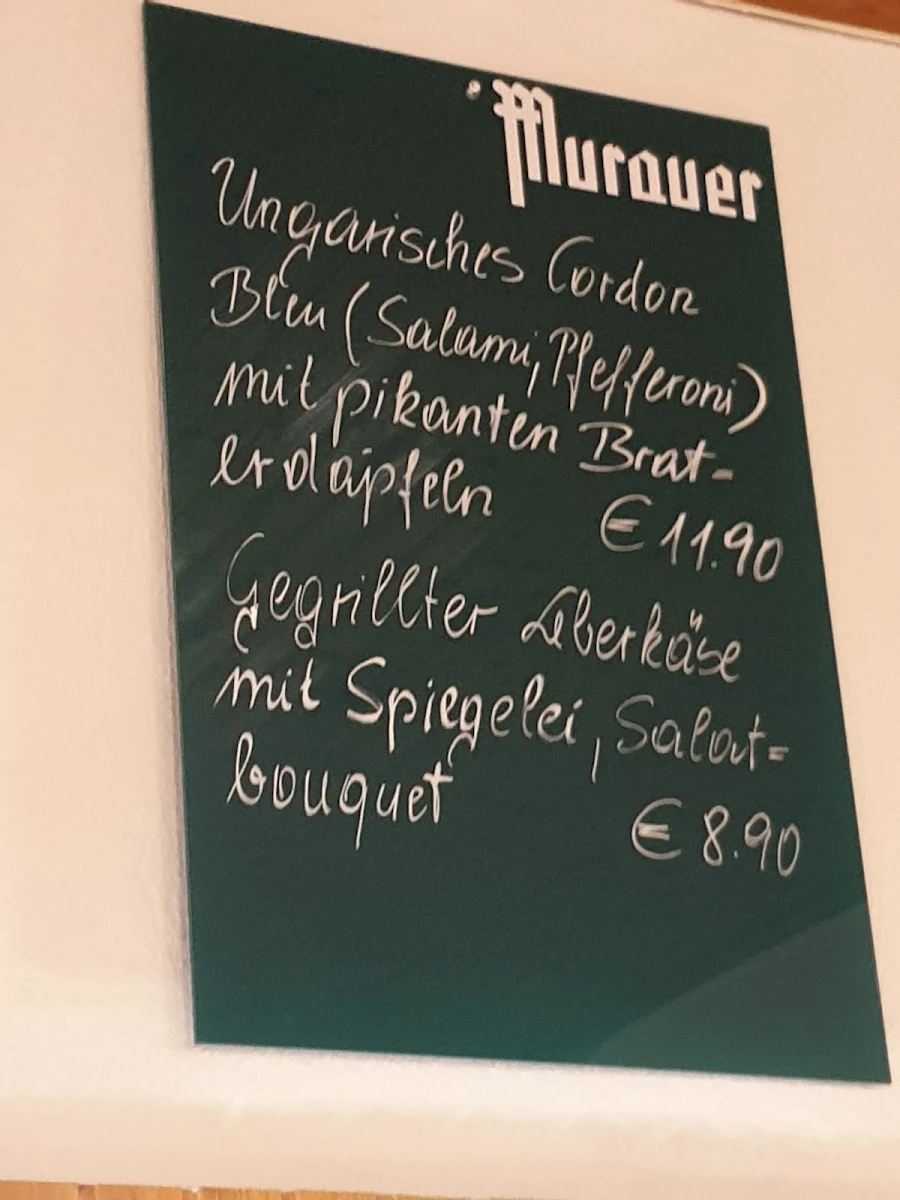 Murauer
Ungarisches Cordon
Bleu (Salami, Pfefferoni)
mit pikanten Brat-
erdäpfeln € 11.90
Gegrillter Leberkäse
mit Spiegelei, Salat=
bouquet € 8.90